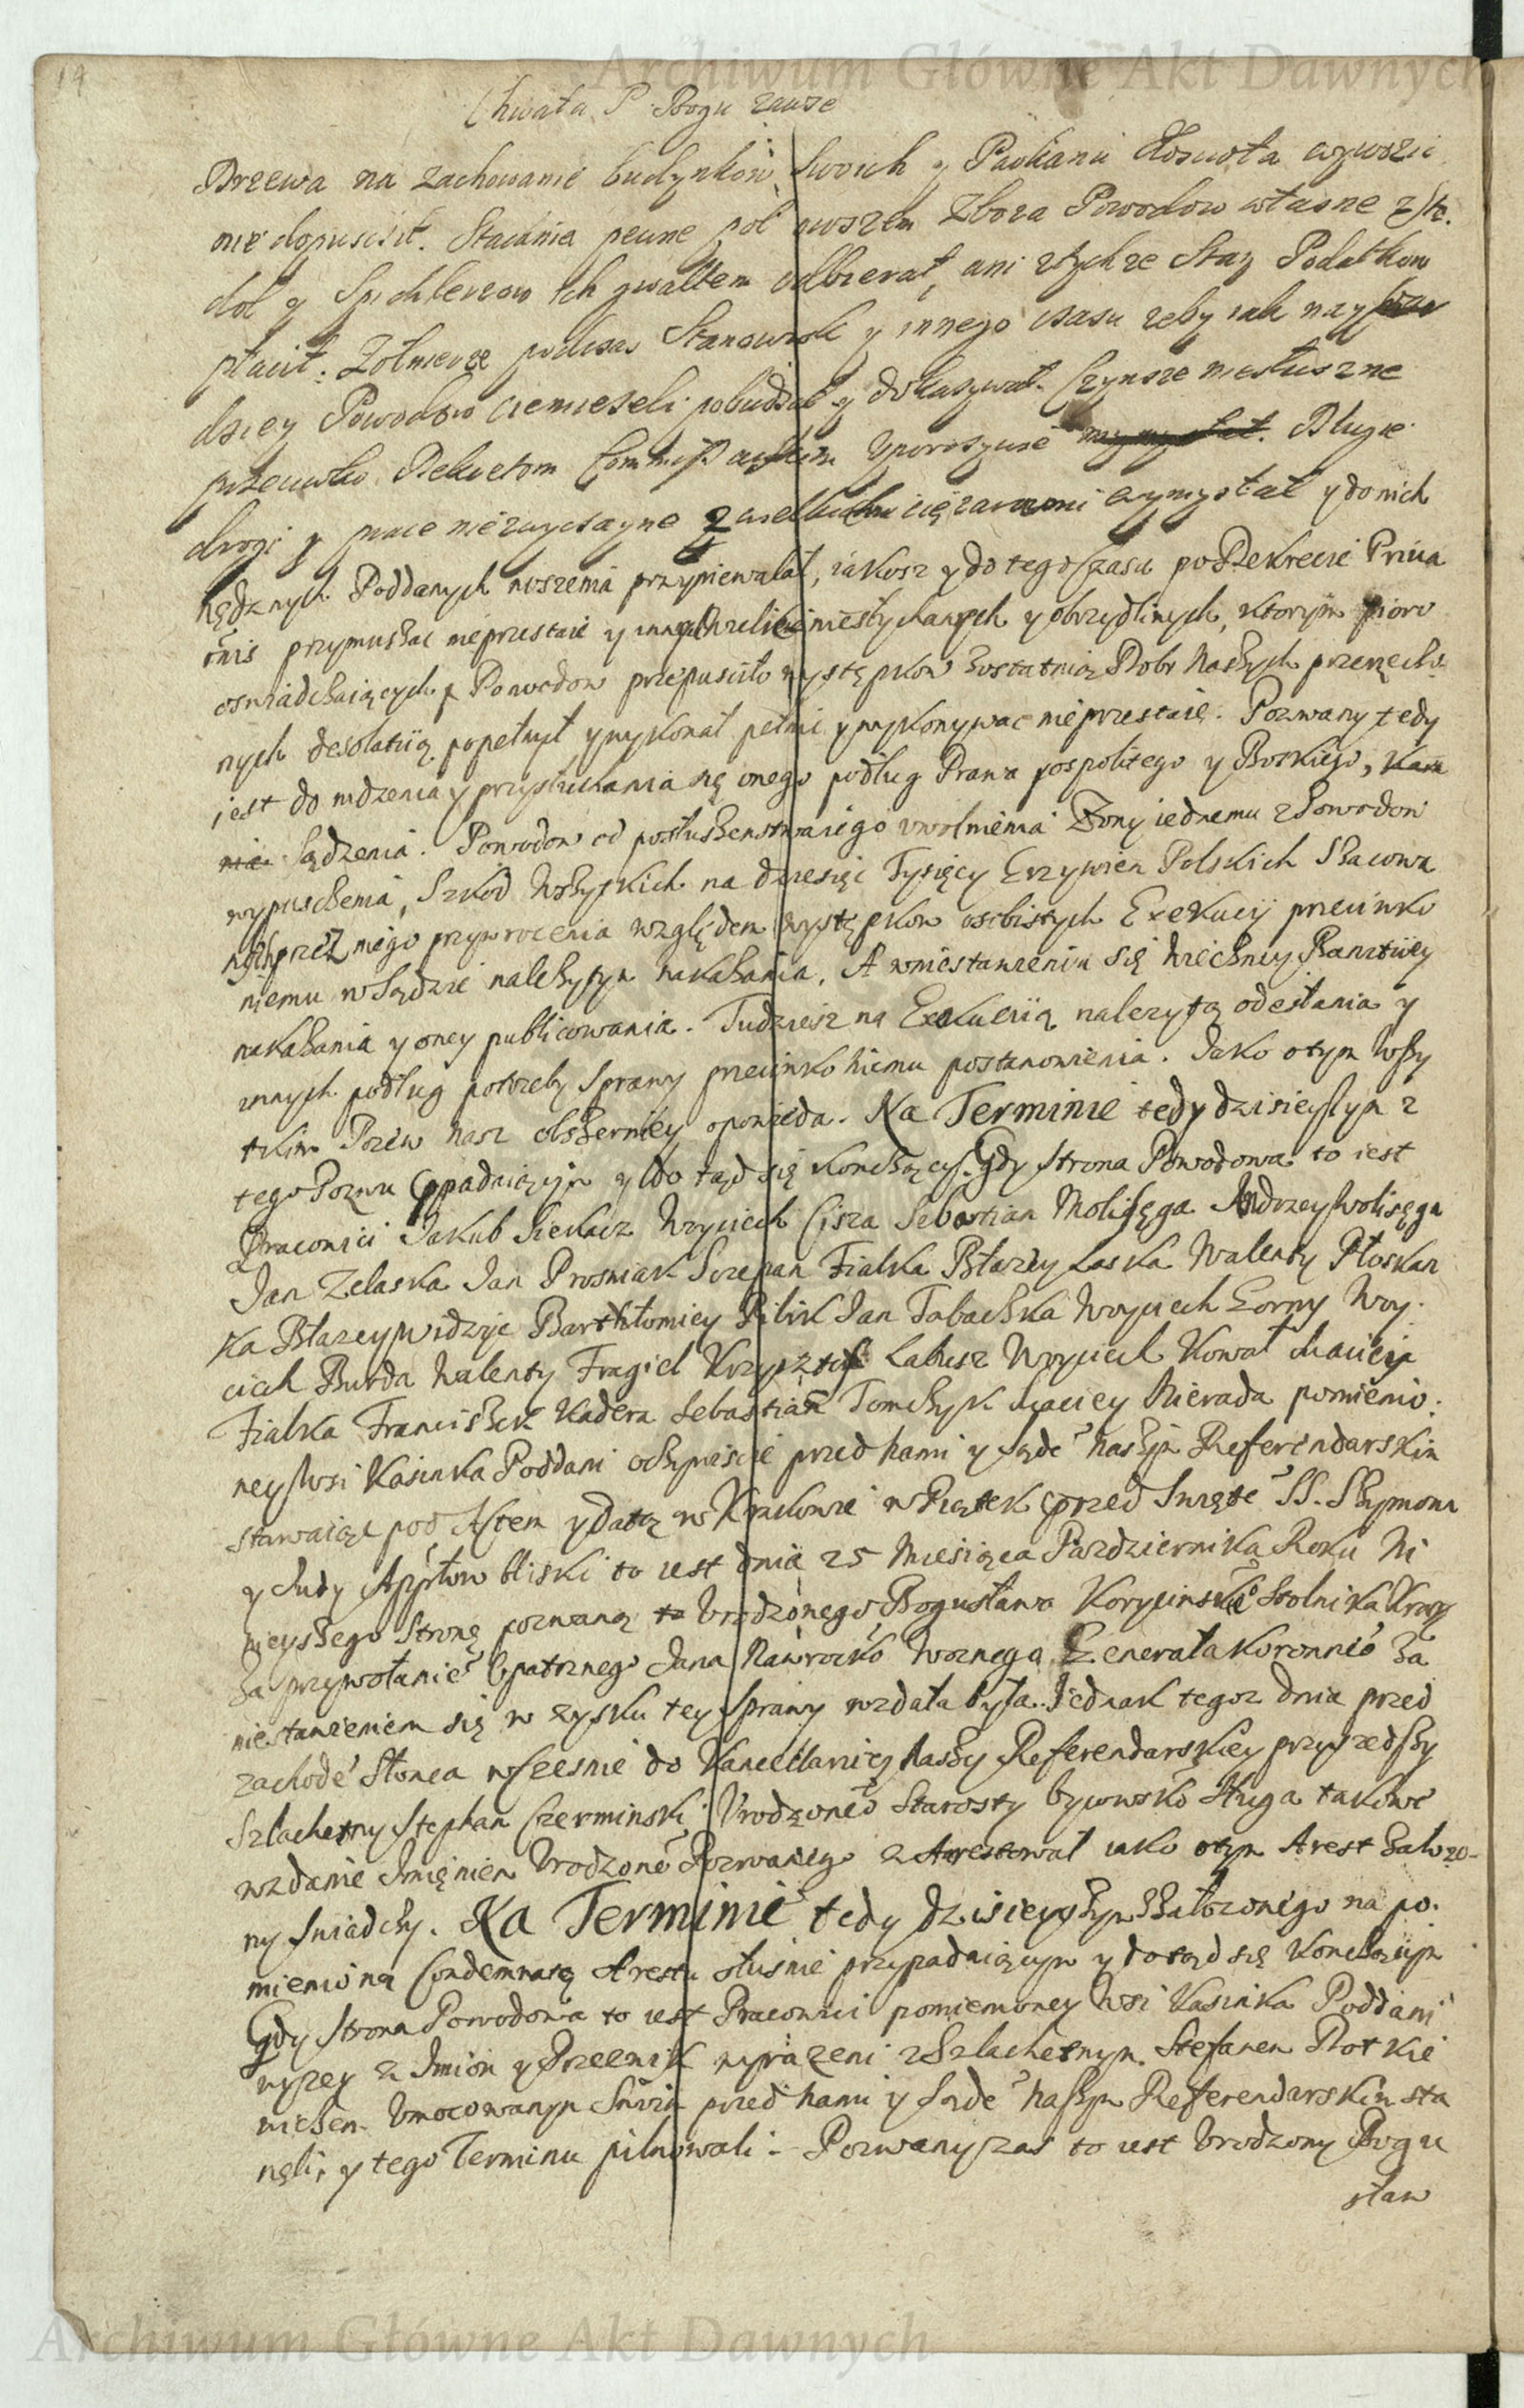 Archiwum Główne Akt Dawnych
14
Chwała P. Bogu zawse
Drzewa na zachowanie budynkow swoich y Parkanu Koscioła wywozic
nie dopuscił. Stacknia pewne pol noszen Zboza Powodow własne z Sto.
dol y Spichlerzow ich gwałtem odbierał, ani z tychze Stay Podatkow
płacił. Zołnierze podczas Stanowisk y innego czasu zeby iak nay
dziey Powodow ciemiezeli pobudzał y dokazywał. Czynsze niesłuszne
przeciwko Dekretom Commiss Uporczywie Długie
drogi y prace niezwyczayne z wielkiemi ciężarami wymyslał y do nich
nędznych Poddanych noszenia przyniewalał, iakosz y do tego Czasu po Dekrecie Priua
tnis przymuszac nieprzestaie y innych wielu niesłychanych y obrzydliwych, ktorym pioro
oswiadczaiących Powodow przepusciło występkow zostatnią Dobr Naszych przerzeczo
nych desolatią popełnył y wykonał pełni y wykonywac nieprzestaie. Pozwany tedy
jest do widzenia y przysłuchania się onego podług Prawa pospolitego y Boskiego,
Sądzenia. Powodow od posłuszenstwa iego uwolnienia Zony iednemu z Powodow
wypuszczenia, Szkod Wszystkich na dziesięc Tysięcy Grzywien Polskich Szacowa
nych przez niego przywrocenia względem występkow osobistych Exekucÿ przeciwko
niemu w Sądzie nalezytym nakazania. A w niestawieniu się Wieczney Banitiÿ
nakazania y oney publicowania. Tudziesz na Exekucią nalezytą odesłania y
innych podług potrzeby Sprawy przeciwko niemu postanowienia. Jako o tym wszy
tkim Pozew nasz obszerniey opowieda. Na Terminie tedy dzisieyszym z
tego Pozwu przypadaiącym y do tąd się Konczący. Gdy strona Powodowa to iest
Pracowici Jakub Siekacz Woyciech Cisza Sebastian Wolisęga Andrzey Wolisęga
Jan Zelaska Jan Prosniak Sczepan Fialka Błazey Laska Walenty Płoskon
ka Błazey Widzyc Barthłomiey Pilik Jan Tabaszka Woyciech Gorny Woy.
ciech Burda Walenty Fragiel Krzysztof Labusz Woyciech Kowal Maciey
Fialka Franciszek Kadera Sebastian Tomczyk Maciey Nierada pomienio.
ney Wsi Kasinka Poddani oczywiscie przed nami y Sądē naszym Referendarskim
stawaiąc pod Aktem y Datą w Krakowie w Piątek przed Swiętē SS. Szymona
y Judy App̄łow bliski to iest dnia 25 Miesiąca Pazdziernika Roku Ni
nieyszego Stronę pozwaną to Urodzonego Bogusława Korycinskiē Stolnika Krak
za przywołanie Opatrznego Jana Nawrockō Woznego Generała Koronnēo za
niestawieniem się w zysku tey Sprawy wzdała była. Jednak tegoz dnia przed
zachodē Słonca wczesnie do Kancellariey Naszey Referendarskiey przyszedszy
Szlachetny Stephan Czerminski, Urodzonēo Starosty bycowskō Sługa takowe
wzdanie Imięniem Urodzonē Pozwanego zArestował iako o tym Arest Załozo-
ny swiadczy. Na Terminie tedy dzisieyszym z załozonego na po.
mienioną Condemnatę Arestu słusnie przypadaiącym y do tąd się Konczącym
Gdy strona Powodowa to iest Pracowici pomienioney Wsi Kasinka Poddani
wyzey z Imion y Przezwisk wyrazeni z Szlachetnym Stefanem Rotkie
wiczem Umocowanym Swoim przed nami y Sądē naszym Referendarskim sta
nęli, y tego Terminu pilnowali. Pozwany zas to iest Urodzony Bogu
sław
Archiwum Główne Akt Dawnych